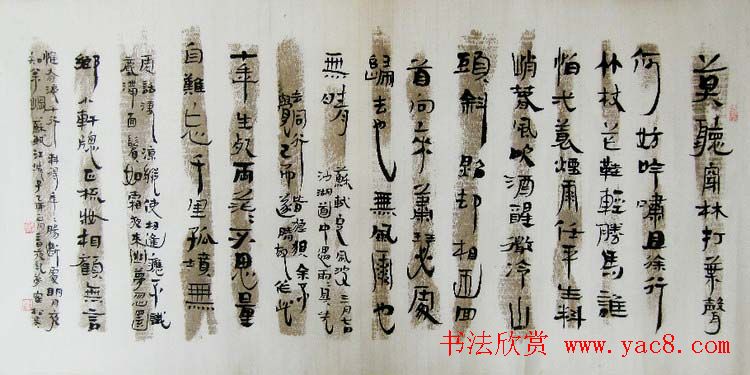 莫聽穿林打葉聲
何妨吟嘯且徐行
竹杖芒鞋輕勝馬誰
怕一蓑煙雨任平生料
峭春風吹酒醒微冷山
頭斜照却相迎回
首向來蕭瑟處
歸去也無風雨也
無晴
蘇軾定風波三月七日
沙湖道中遇雨雨具先
去同行皆狼狽余不
覺已而遂晴故作此
十年生死兩茫茫不思量
自難忘千里孤墳無
處話淒涼縱使相逢應不識
塵滿面鬢如霜夜來幽夢忽還
鄉小軒牕正梳妝相顧無言
惟有淚千行料得年年腸斷處明月夜
短松岡蘇軾江城子
书法欣赏 www.yac8.com